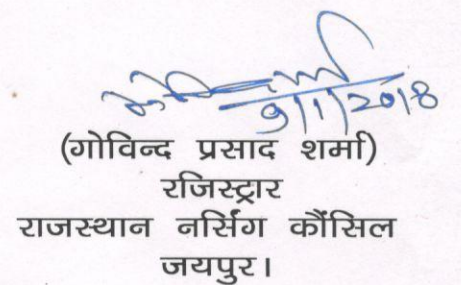 9/1/2018
(गोविन्द प्रसाद शर्मा)
रजिस्ट्रार
राजस्थान नर्सिंग कौंसिल
जयपुर।